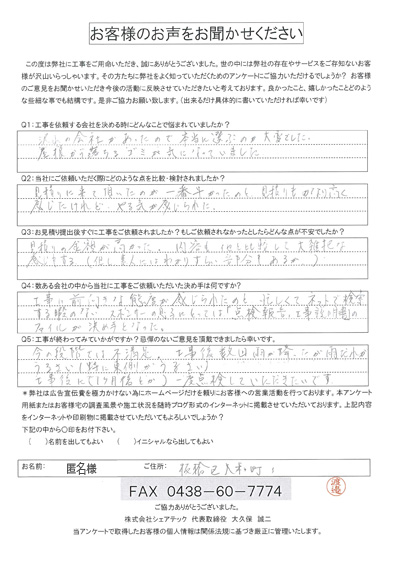 お客様のお声をお聞かせください
この度は弊社に工事をご用命いただき、誠にありがとうございました。世の中には弊社の存在やサービスをご存知ないお客
様が沢山いらっしゃいます。その方たちに弊社をよく知っていただくためのアンケートにご協力いただけるでしょうか？ お客様
のご意見をお聞かせいただき今後の活動に反映させていただきたいと考えております。良かったこと、嬉しかったことどのよう
な些細な事でも結構です。是非ご協力お願い致します。（出来るだけ具体的に書いていただければ幸いです）
Q1：工事を依頼する会社を決める時にどんなことで悩まれていましたか？
沢山の会社があったので本当に選ぶのが大変でした。
屋根から落ちるゴミが気になっていました
Q2：当社にご依頼いただく際にどのような点を比較・検討されましたか？
見積りに来て頂いたのが一番早かったのと見積りもかなり高く
感じたけれど、やる気が感じられた。
Q3：お見積り提出後すぐに工事をご依頼されましたか？もしご依頼されなかったとしたらどんな点が不安でしたか？
見積りの金額が高かった。内容も他と比較して大雑把な
感じもする（
Q4：数ある会社の中から当社にご依頼いただいた決め手は何ですか？
工事に前向きな態度が感じられたのと忙しくてネットで検索
する暇のない
ファイルが決め手となった。
Q5：工事が終わってみていかがですか？忌憚のないご意見を頂戴できましたら幸いです。
今の段階では不満足。工事後数回雨が降ったが雨だれが
うるさい（特に東側がうるさい）
一度点検していただきたいです
＊弊社は広告宣伝費を極力かけない為にホームページだけを頼りにお客様への営業活動を行っております。本アンケート
用紙またはお客様宅の調査風景や施工状況を随時ブログ形式のインターネットに掲載させていただいております。上記内容
をインターネットや印刷物に掲載させていただいてもよろしいでしょうか？
下記の中から○印をお付下さい。
（ ）名前を出してもよい （ ）イニシャルなら出してもよい
お名前： 匿名様 ご住所： 板橋区大和町
FAX 0438-60-7774
渡邉
ご協力ありがとうございました。
株式会社シェアテック 代表取締役 大久保 誠二
当アンケートで取得したお客様の個人情報は関係法規に基づき厳正に管理いたします。